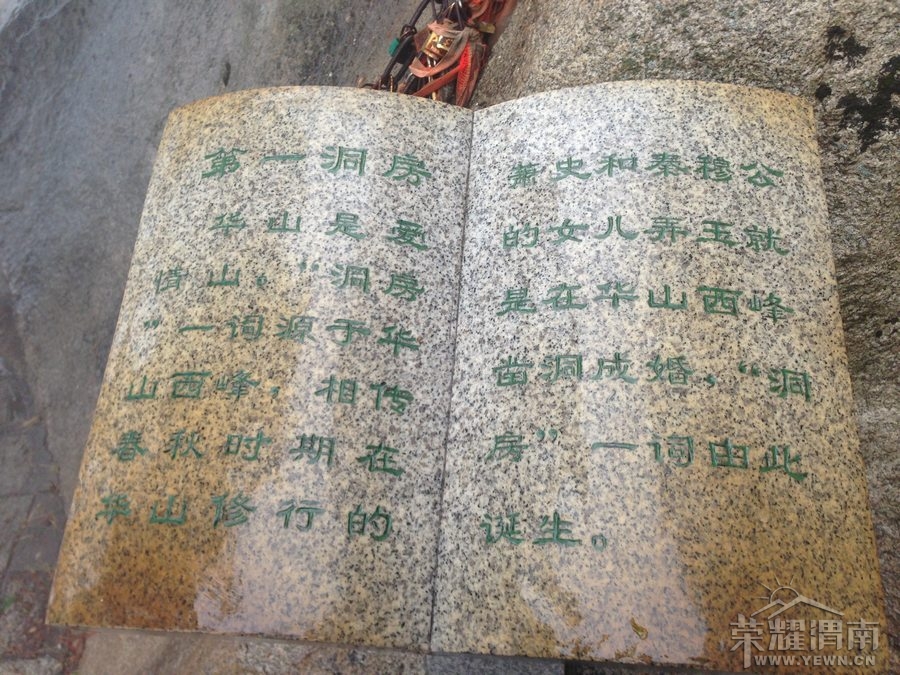 第一洞房
华山是爱
情山。“洞房
”一词源于华
山西峰，相传
春秋时期在
华山修行的
萧史和秦穆公
的女儿弄玉就
是在华山西峰
凿洞成婚，“洞
房”一词由此
诞生。
荣耀渭南
WWW.YEWN.CN